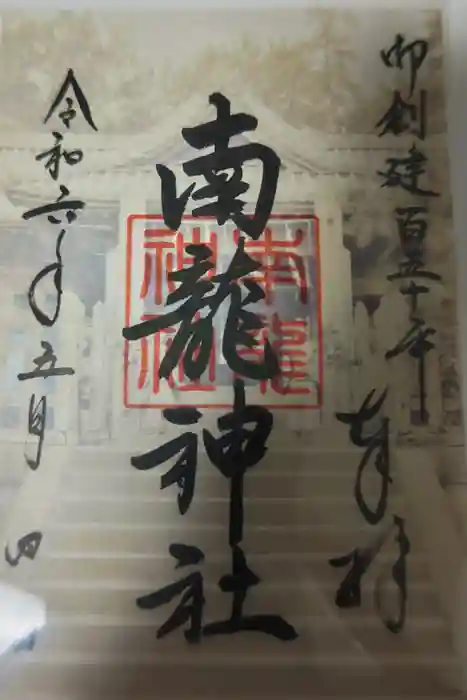 御創建百五十年
奉拝
南龍神社
南龍
神社
令和六年五月四日